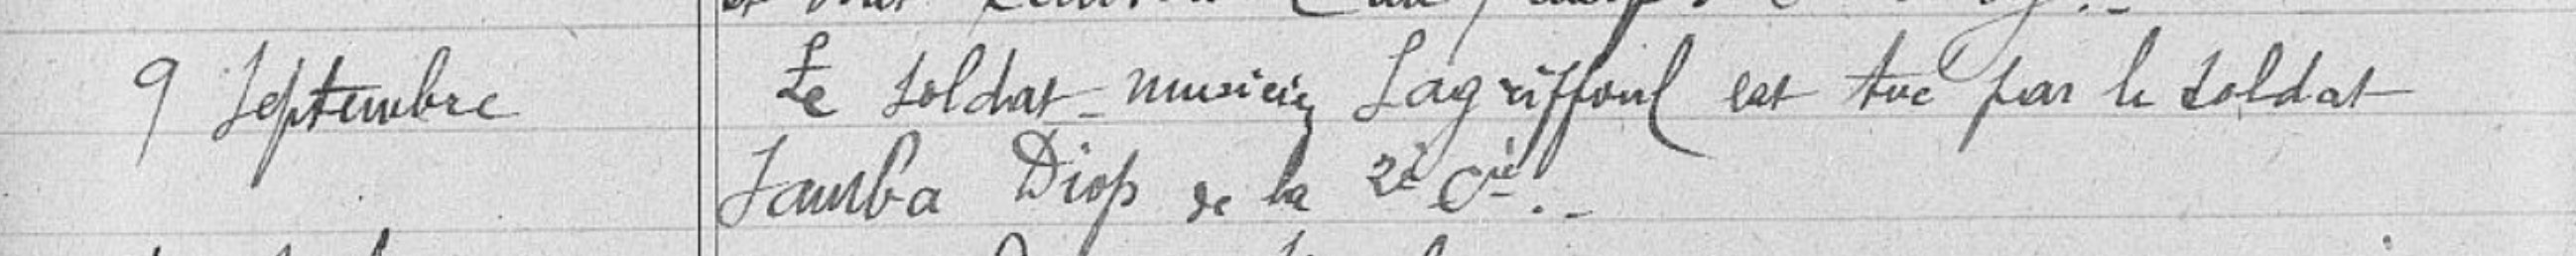 9 Septembre
Le soldat-musicien Lagriffoul est tué par le soldat
Samba Diop de la 2è Cie.-